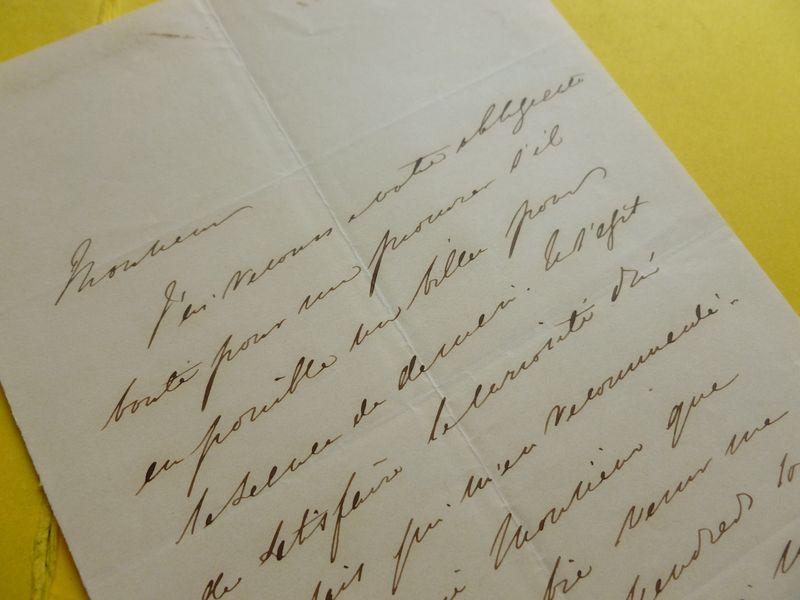 Monsieur
J'ai recours a votre obligeante
bonté pour me procurer s'il
est possible un billet pour
la séance de demain. Il s'agit
de satisfaire la curiosité d'un
qui m'en recommandé
Monsieur que
venir me